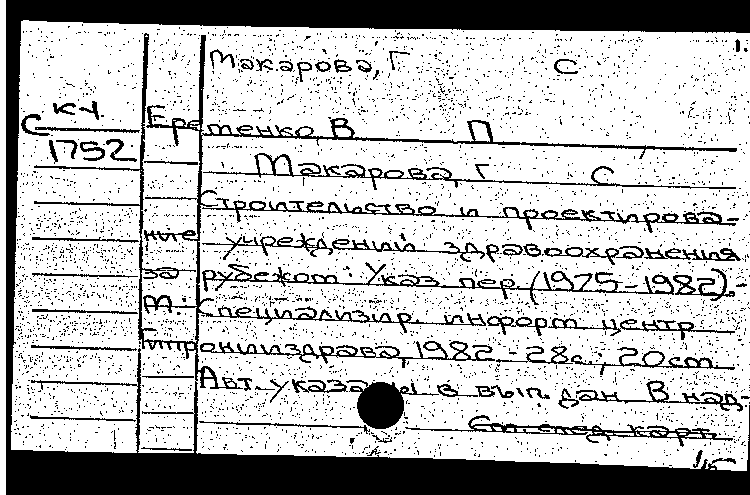 Макарова, Г С
С КЧ
1752
Еременко, В П
Макарова, Г С
Строительство и проектирова-
ние учреждений здравоохранения
за рубежом: Указ. пер. (1975-1982).-
М.: Специализир. информ центр
Гипрониииздрава, 1982 - 28с.; 20см.
Авт. указаны в вып. дан. В над-
См. след. карт.